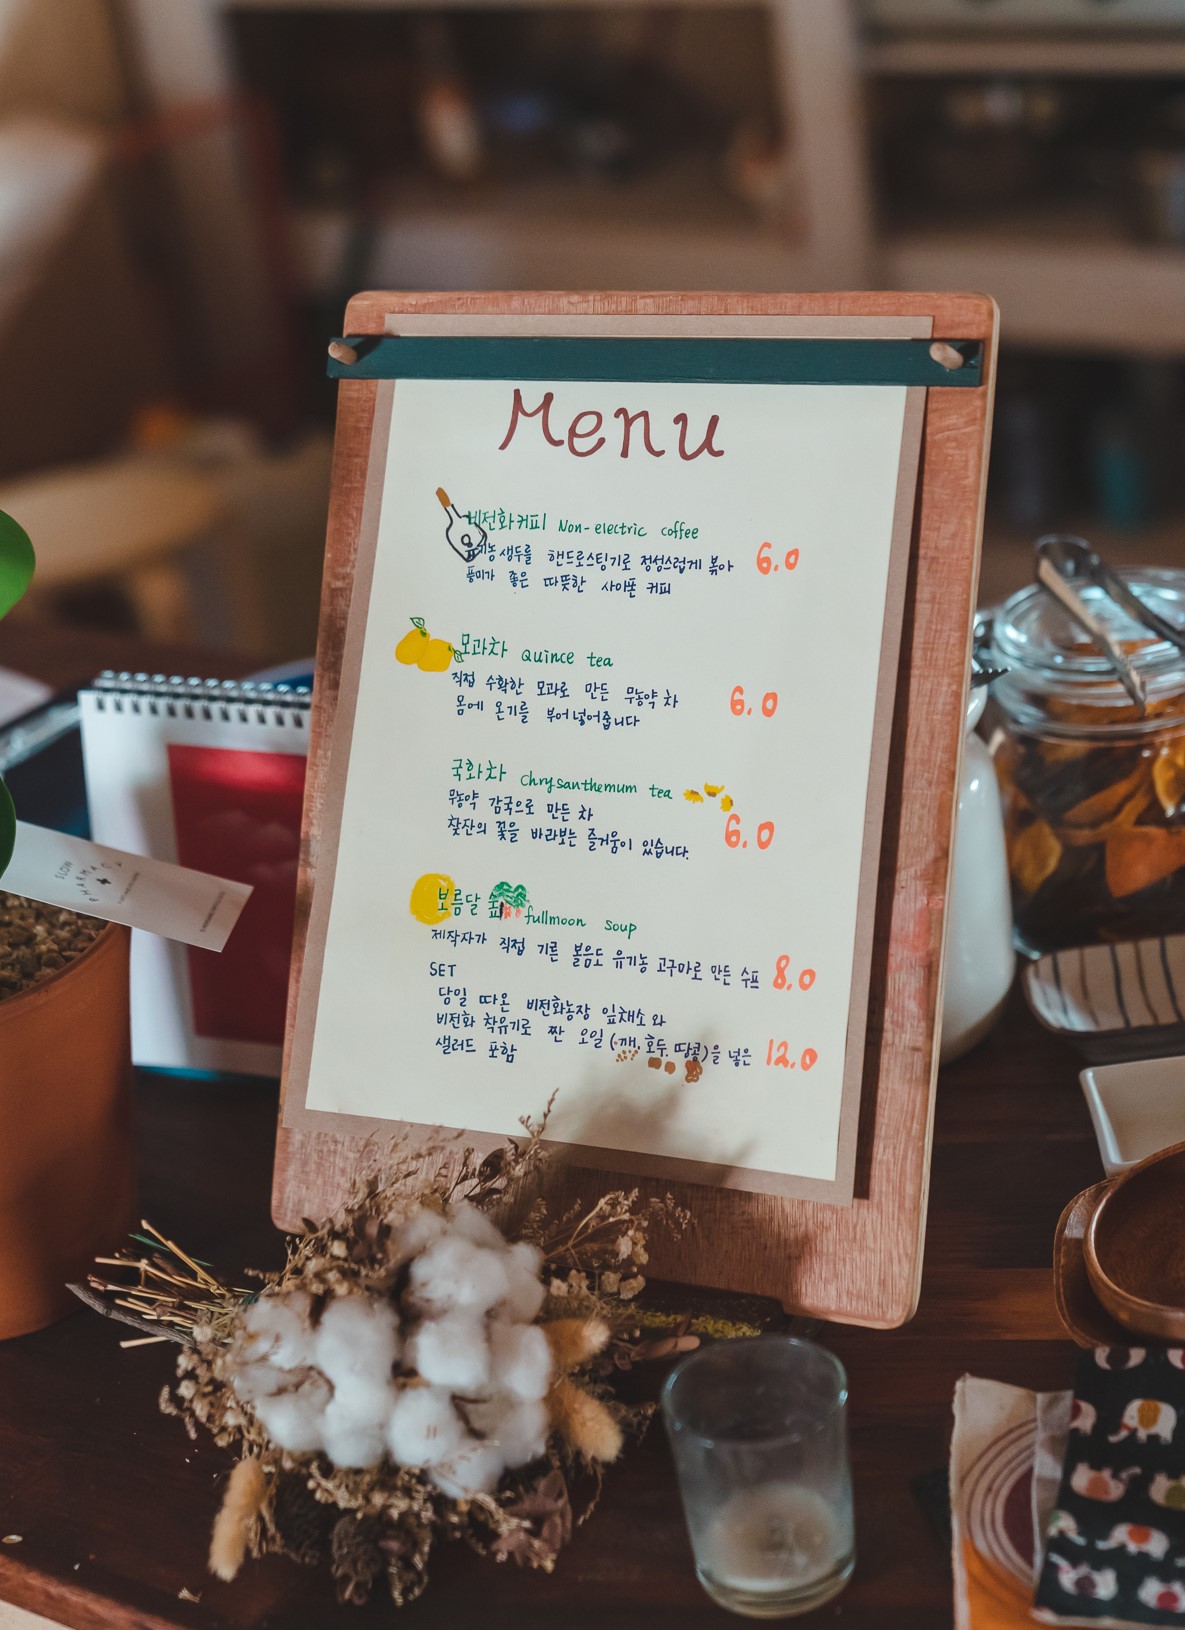 Menu
비전화커피 Non-electric coffee
유기농 생두를 핸드로스팅기로 정성스럽게 볶아 6.0
풍미가 좋은 따뜻한 사이폰 커피
모과차 Quince tea
직접 수확한 모과로 만든 무농약 차 6.0
몸에 온기를 불어넣어줍니다
국화차 Chrysanthemum tea
무농약 감국으로 만든 차
찻잔의 꽃을 바라보는 즐거움이 있습니다. 6.0
보름달 숲 fullmoon soup
제작자가 직접 기른 볼음도 유기농 고구마로 만든 수프 8.0
SET
당일 따온 비전화농장 잎채소와
비전화 착유기로 짠 오일 (깨, 호두, 땅콩)을 넣은 12.0
샐러드 포함
SLOW
PHARMACY